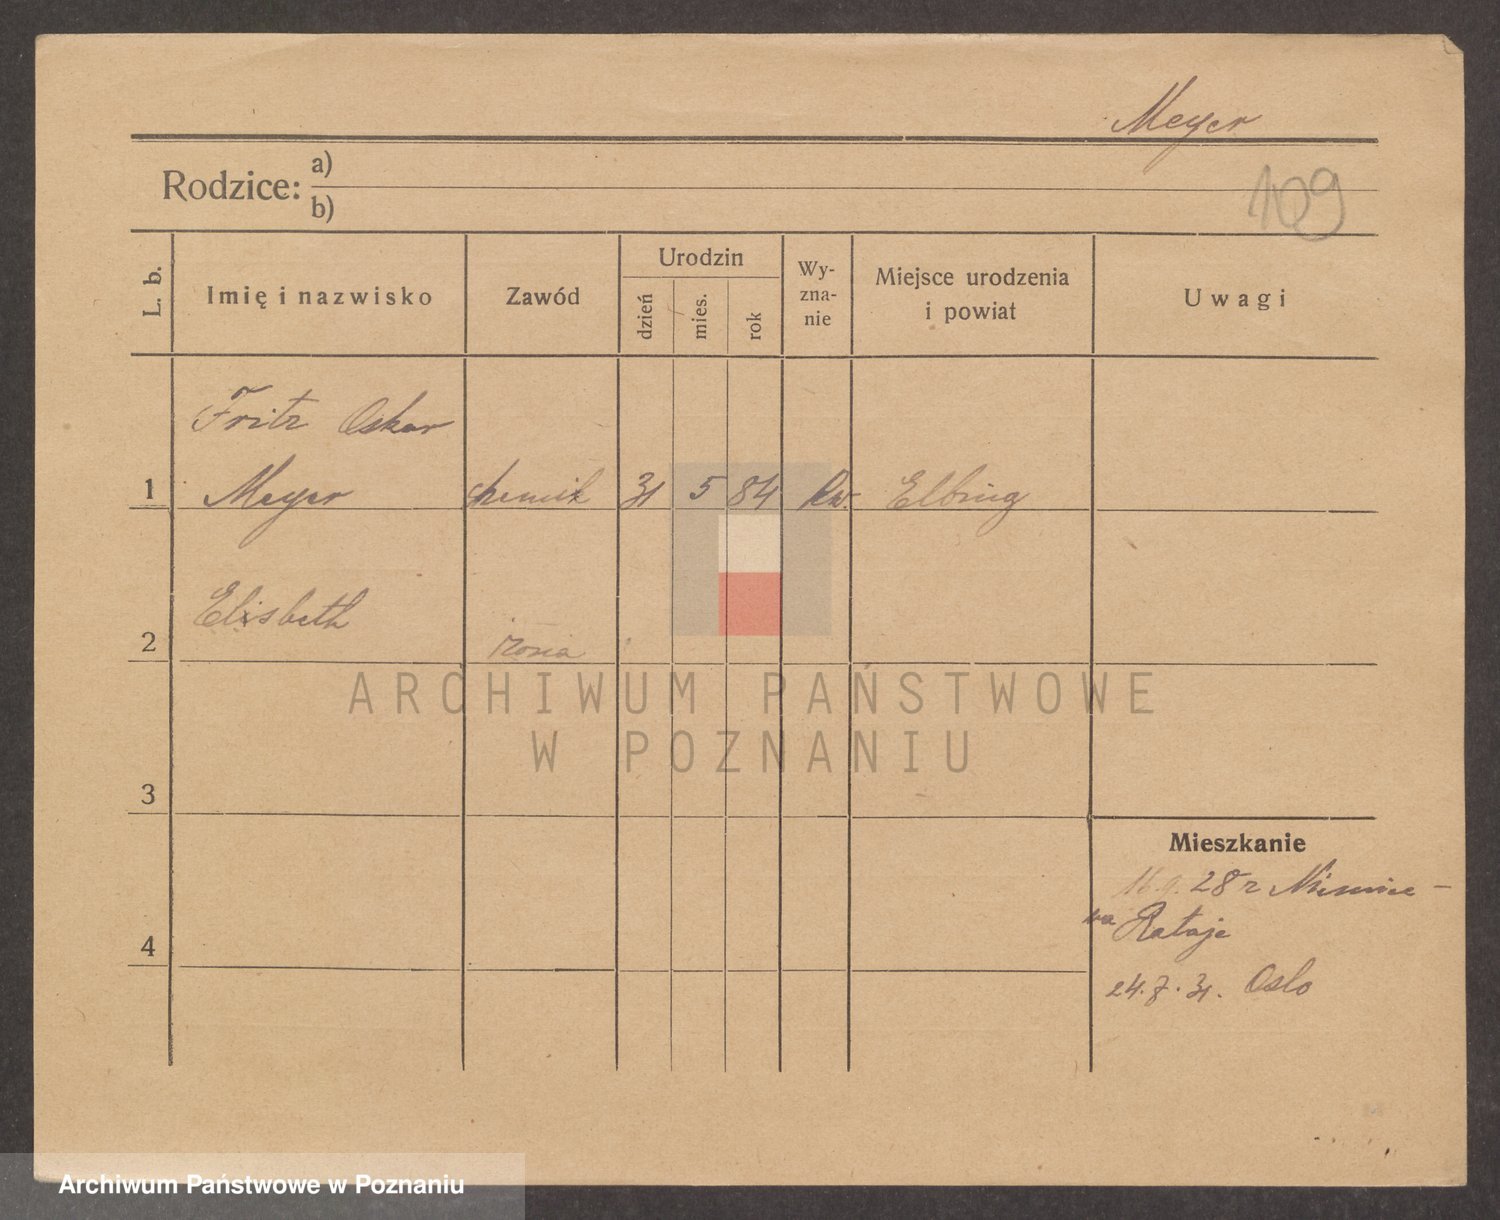 Meyer
109
Rodzice: a)
b)
L. b.
Imię i nazwisko
Zawód
Urodzin
dzień
mies.
rok
Wy-
zna-
nie
Miejsce urodzenia
i powiat
Uwagi
Fritz Oskar
1 Meyer chemik 31 5 84 Elbing
Elisbeth
2 żona
ARCHIWUM PAŃSTWOWE
W POZNANIU
3
Mieszkanie
16.9. 28 z
Rataje
4
24.7.31. Oslo
Archiwum Państwowe w Poznaniu